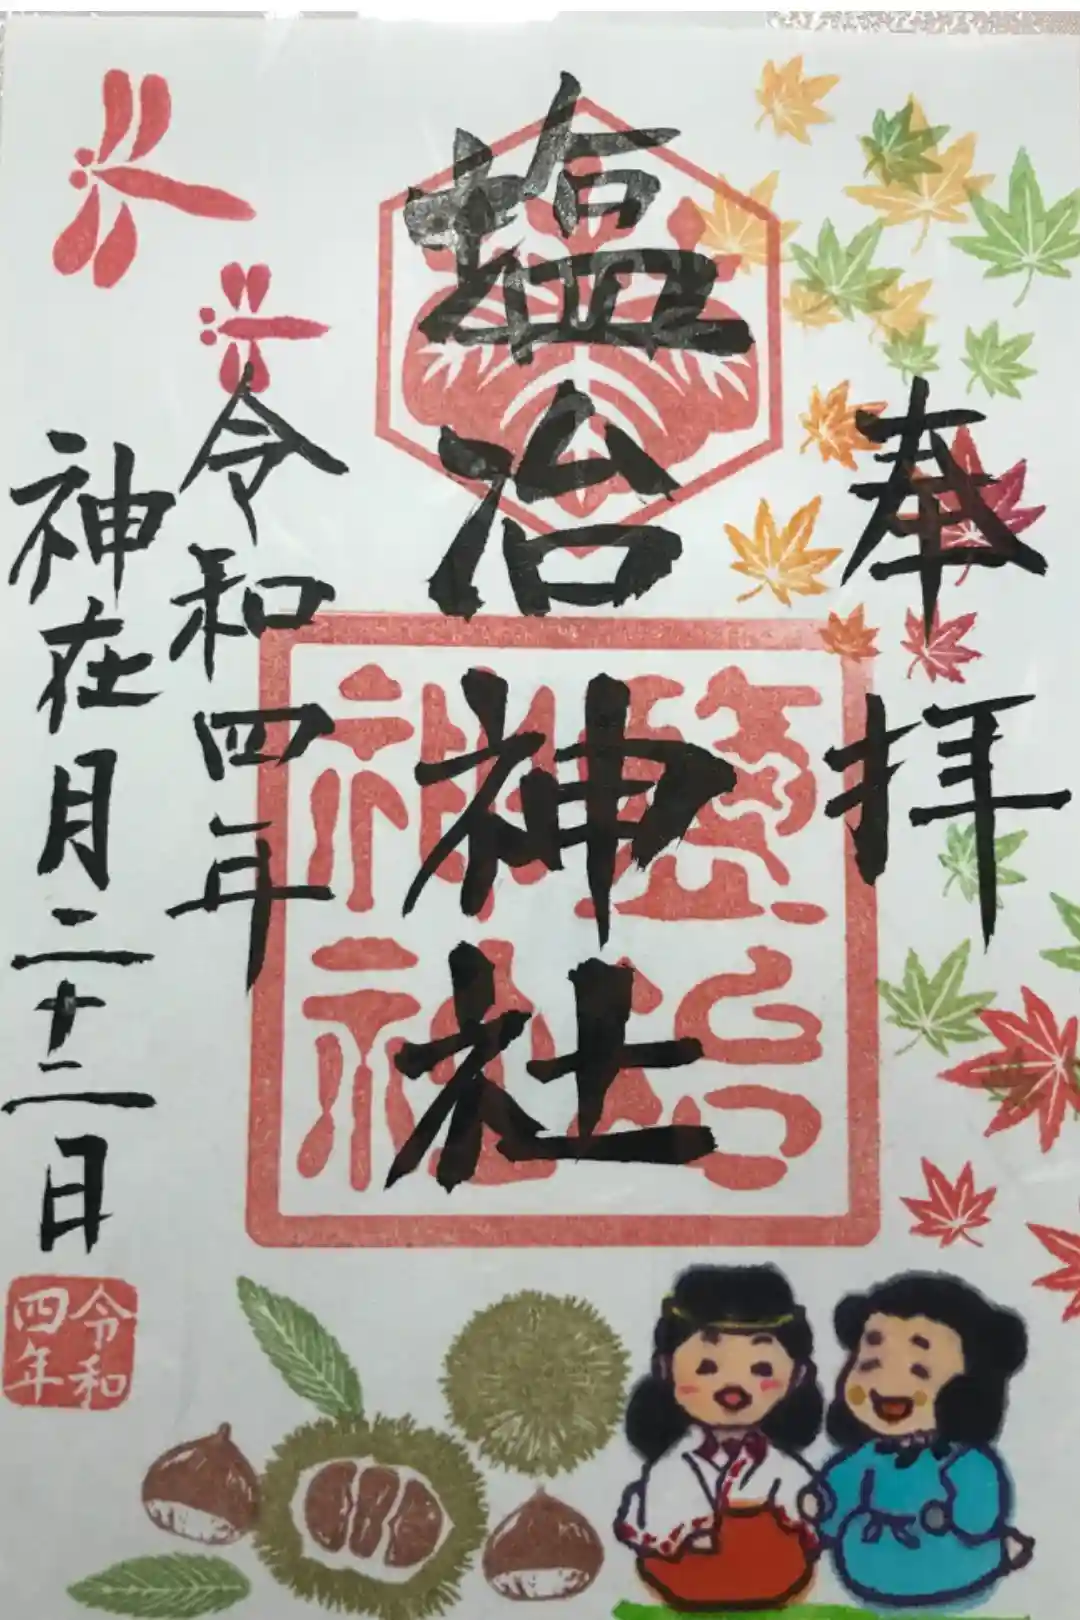 奉拝
塩冶神社
令和四年
神在月二十二日
塩冶
神社
令和
四年